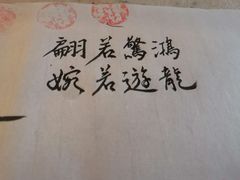 翩若驚鴻
婉若遊龍